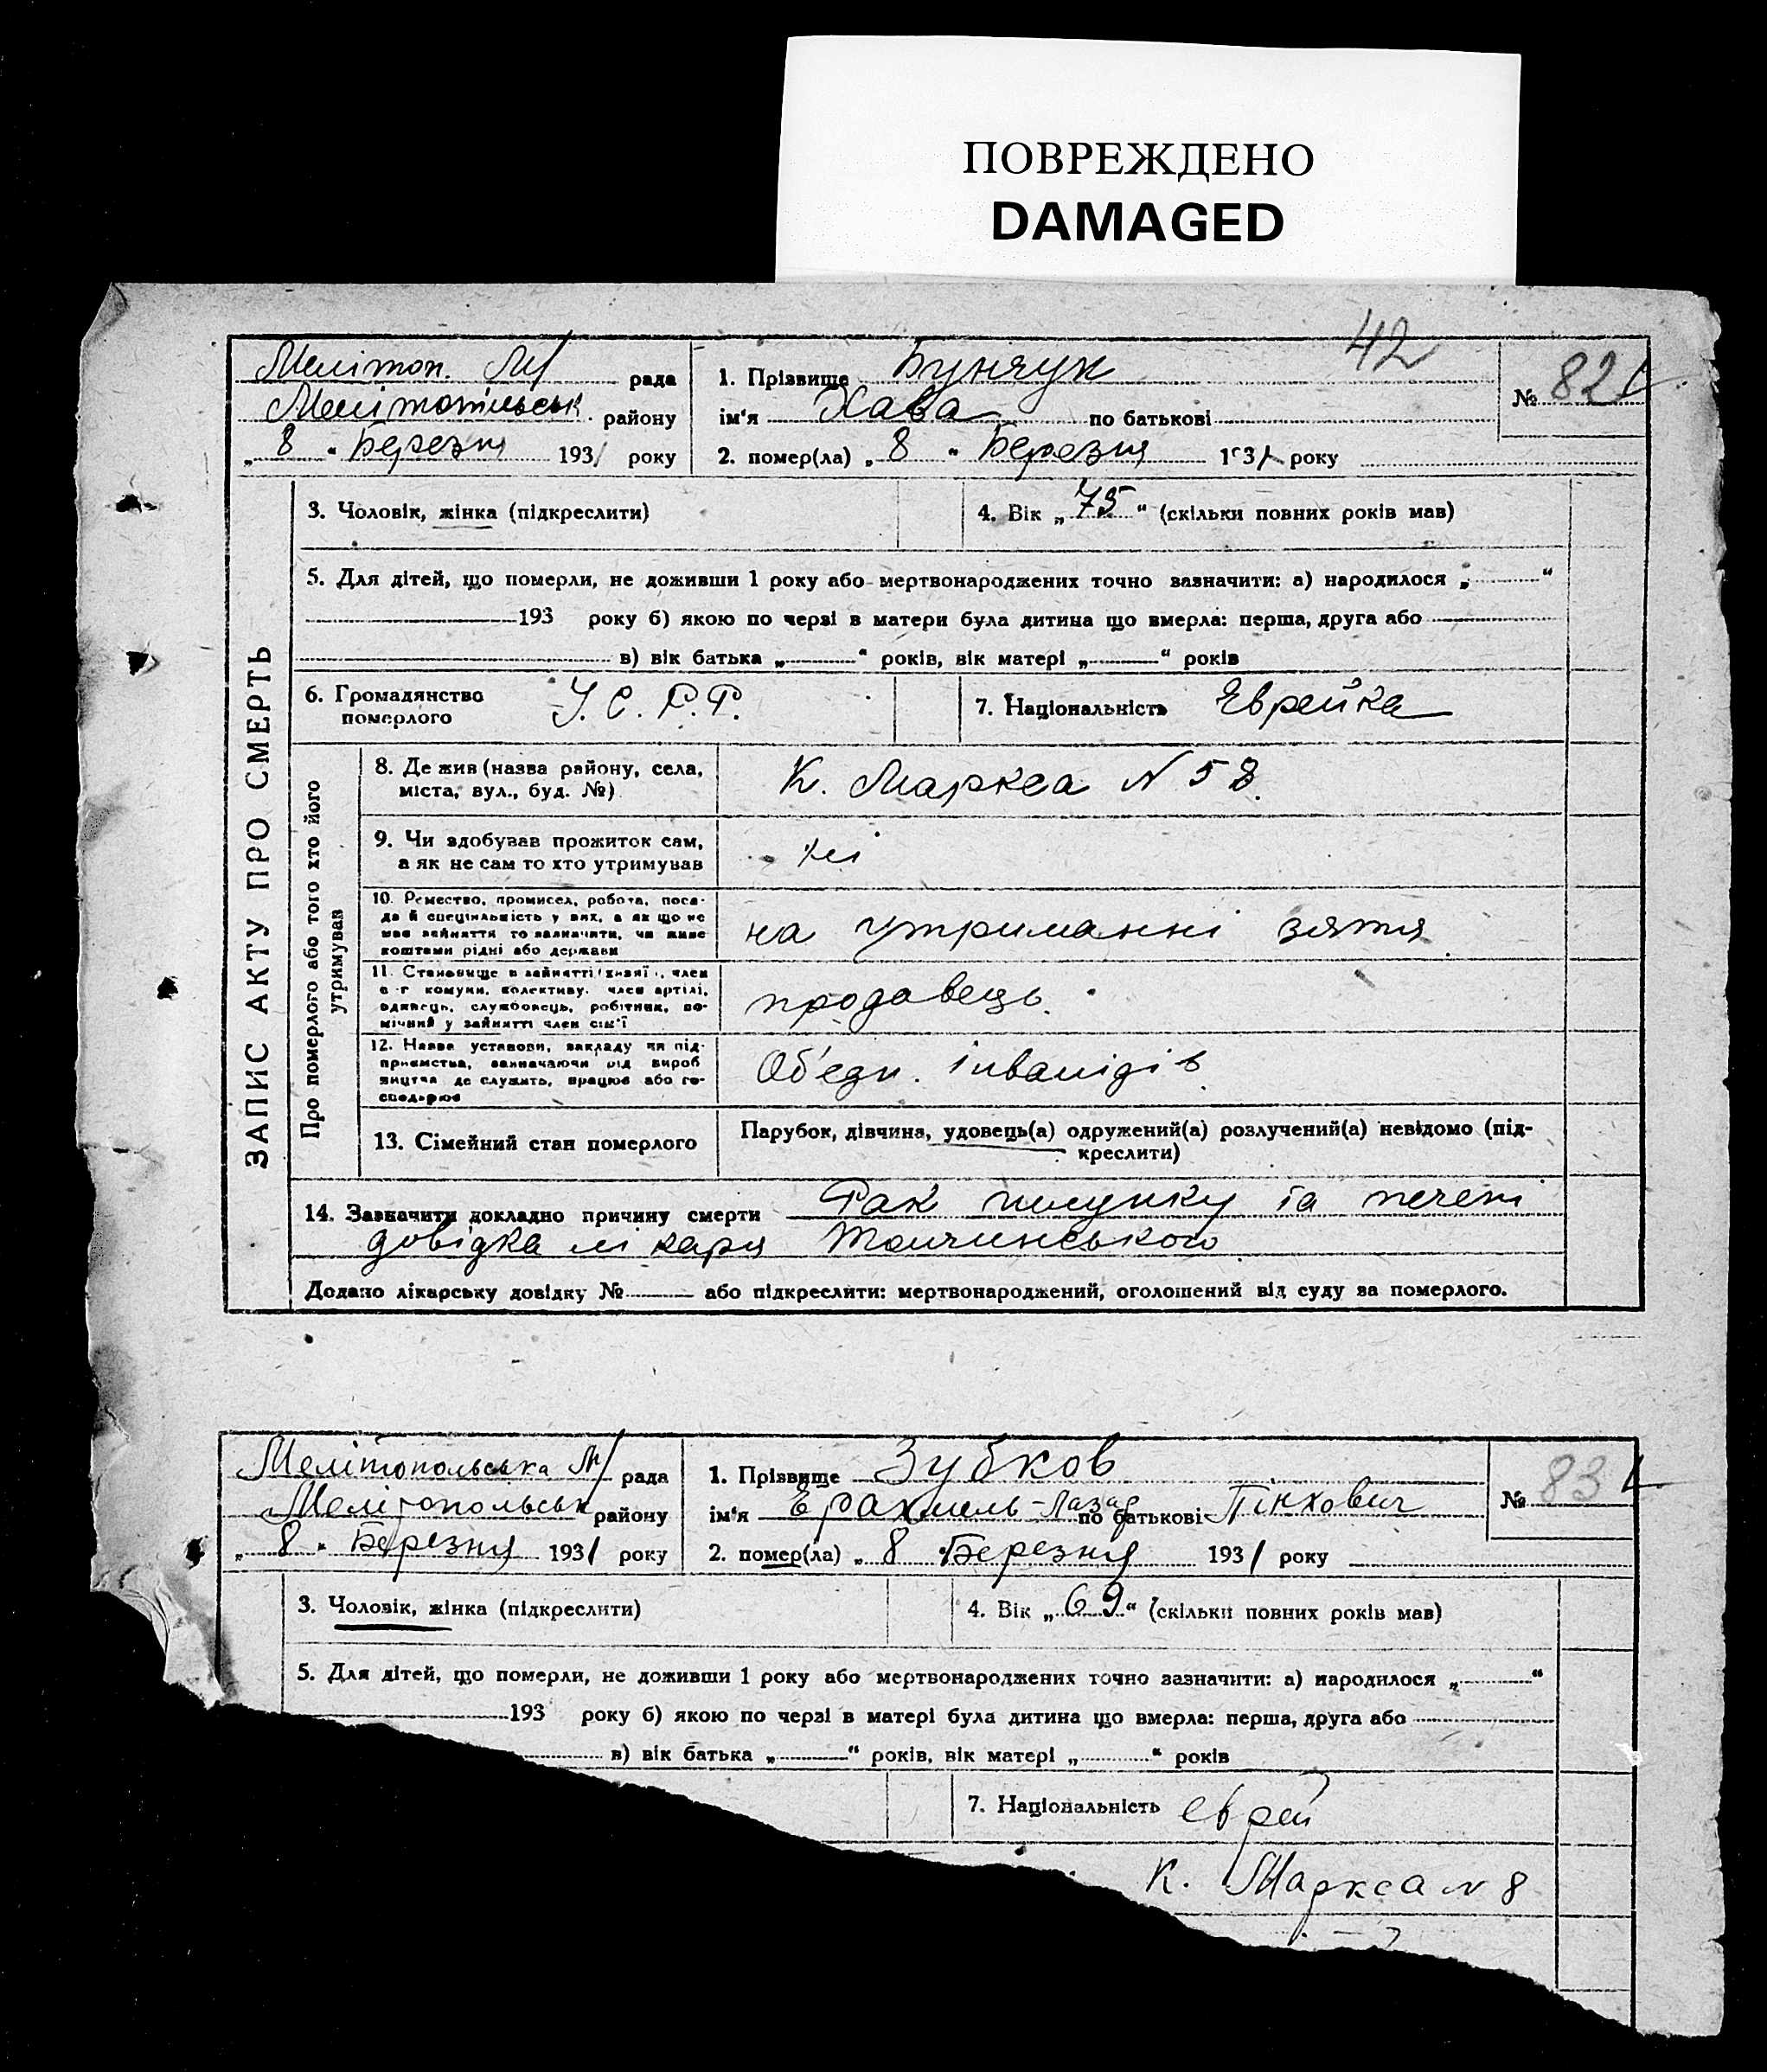 ПОВРЕЖДЕНО
DAMAGED
42
Мелітоп. М/ рада
Мелітопільськ району
„ 8 " Березня 1931 року
1. Прізвище Бунчук
ім'я Хава по батькові
2. помер(ла) „ 8 " Березня 1931 року
№ 82
ЗАПИС АКТУ ПРО СМЕРТЬ
3. Чоловік, жінка (підкреслити)
4. Вік „ 75 " (скільки повних років мав)
5. Для дітей, що померли, не доживши 1 року або мертвонароджених точно зазначити: а) народилося „ "
193 року б) якою по черзі в матери була дитина що вмерла: перша, друга або
в) вік батька „ " років, вік матері „ " років
6. Громадянство
померлого
У. С. Р. Р.
7. Національність Еврейка
Про померлого або того хто його
утримував
8. Де жив (назва району, села,
міста, вул., буд. №)
К. Маркса N 58
9. Чи здобував прожиток сам,
а як не сам то хто утримував
ні
10. Ремество, промисел, робота, поса-
да й спеціяльність у них, а як що не
мав зайняття то зазначити, чи живе
коштами рідні або держави
на утриманні зятя
11. Становище в зайнятті (хазяї, член
с-г комуни, колективу, член артілі,
одинець, службовець, робітник, по-
мічний у зайнятті член сім'ї
продавець
12. Назва установи, закладу чи під-
приємства, зазначаючи від вироб
ництва де служить, працює або го-
сподарює
Об'єдн. інвалідів
13. Сімейний стан померлого
Парубок, дівчина, удовець(а) одружений(а) розлучений(а) невідомо (під-
креслити)
14. Зазначити докладно причину смерти Рак шлунку та печені
довідка лікаря
Додано лікарську довідку № або підкреслити: мертвонароджений, оголошений від суду за померлого.
Мелітопольська М/ рада
Мелітопольськ району
„ 8 " Березня 1931 року
1. Прізвище Зубков
ім'я Ерахмель-Лазар по батькові Пінхович
2. помер(ла) „ 8 " Березня 1931 року
№ 83
3. Чоловік, жінка (підкреслити)
4. Вік „ 69 " (скільки повних років мав)
5. Для дітей, що померли, не доживши 1 року або мертвонароджених точно зазначити: а) народилося „ "
193 року б) якою по черзі в матері була дитина що вмерла: перша, друга або
в) вік батька „ " років, вік матері „ " років
7. Національність еврей
К. Маркса N 8